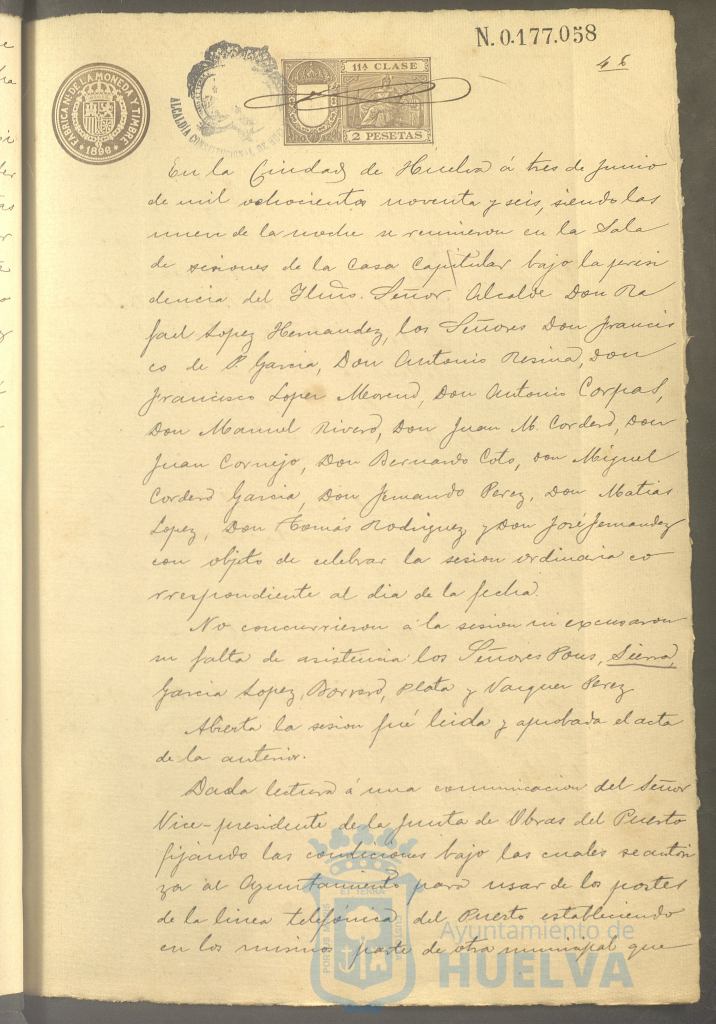 N.0.177.058
46
FABRICA NL. DE LA MONEDA Y TIMBRE
1896
ALCALDÍA CONSTITUCIONAL DE
11ª CLASE
2 PESETAS
En la Ciudad de Huelva á tres de Junio
de mil ochocientos noventa y seis, siendo las
nueve de la noche se reunieron en la Sala
de sesiones de la Casa Capitular bajo la presi
dencia del Iltmo. Señor Alcalde Don Ra
fael Lopez Hernandez, los Señores Don Francis
co de P. Garcia, Don Antonio Resina, Don
Francisco Lopez Moreno, Don Antonio Corpas,
Don Manuel Rivero, Don Juan M. Cordero, Don
Juan Cornejo, Don Bernardo Coto, Don Miguel
Cordero Garcia, Don Fernando Perez, Don Matias
Lopez, Don Tomás Rodriguez y Don José Fernandez
con objeto de celebrar la sesion ordinaria co
rrespondiente al dia de la fecha.
No concurrieron á la sesion ni excusaron
su falta de asistencia los Señores Pous, Sierra,
Garcia Lopez, Borrero, Plata y Vazquez Perez
Abierta la sesion fué leida y aprobada el acta
de la anterior.
Dada lectura á una comunicacion del Señor
Vice-presidente de la Junta de Obras del Puerto
fijando las condiciones bajo las cuales se autori
za al Ayuntamiento para usar de los postes
de la linea telefónica del Puerto estableciendo
en los mismos parte de otra municipal que
PORTUS MARIS ET TERRÆ CUSTODIA
Ayuntamiento de
HUELVA